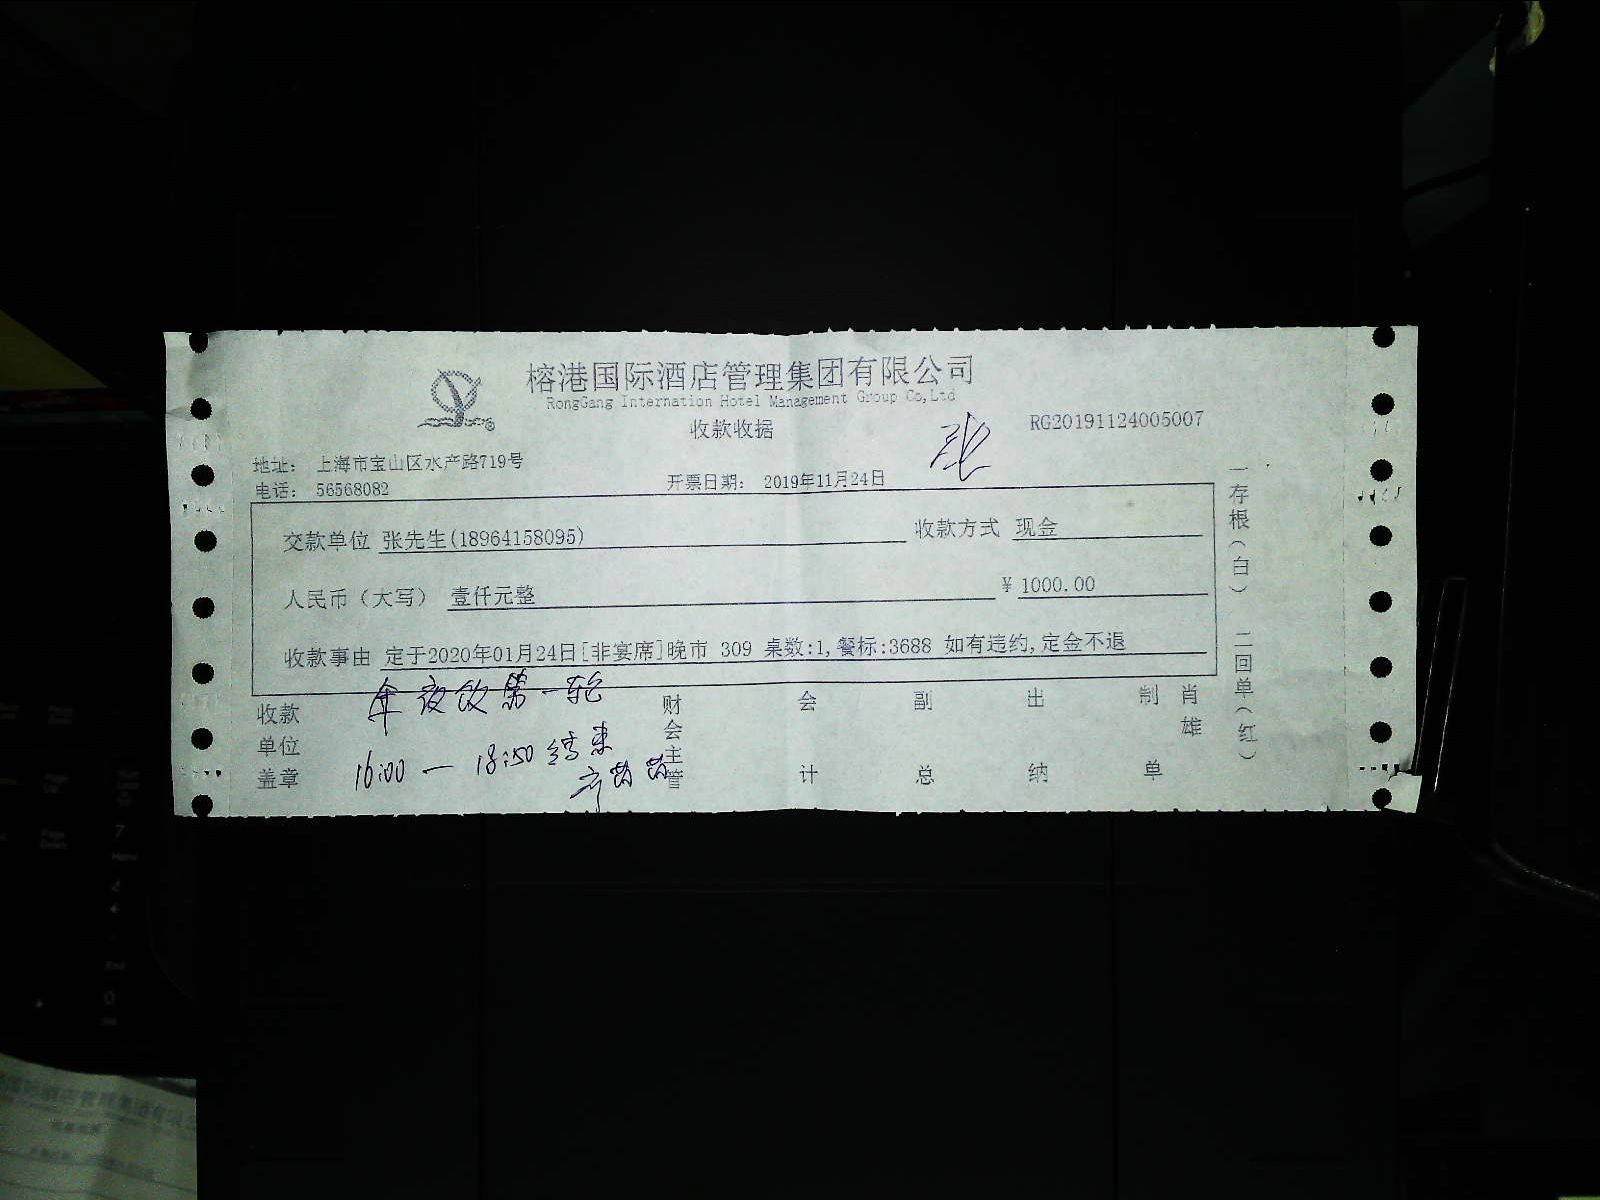 榕港国际酒店管理集团有限公司
RongGang Internation Hotel Management Group Co,Ltd
收款收据
张
RG20191124005007
地址： 上海市宝山区水产路719号
电话： 56568082
开票日期： 2019年11月24日
交款单位 张先生(18964158095)
收款方式 现金
人民币（大写） 壹仟元整
¥ 1000.00
收款事由 定于2020年01月24日[非宴席]晚市 309 桌数:1,餐标:3688 如有违约,定金不退
年夜饭第一轮
16:00 — 18:50 结束
收款单位盖章
财会主管
会计
副总
出纳
制单
肖雄
一存根（白）
二回单（红）
7
Home
4
End
0